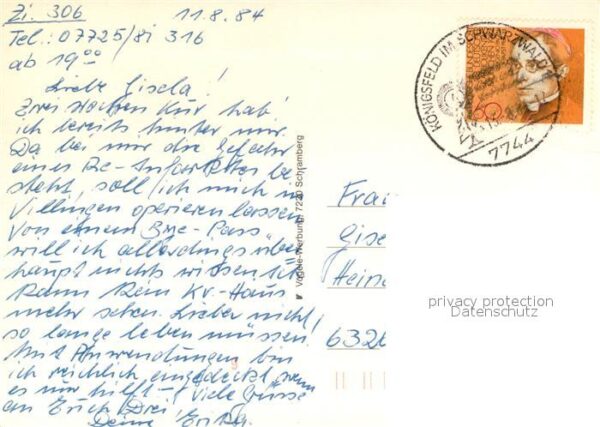 Zi. 306 11.8.84
Tel.: 07725/81 316
ab 19⁰⁰
Liebe Gisela!
Zwei Wochen Kur hab'
ich bereits hinter mir.
Da bei mir die Gefahr
eines Re-Infarktes be
steht, soll ich mich in
Villingen operieren lassen
Von einem "Bye-Pass"
will ich allerdings über
haupt nichts wissen. Ich
kann kein Kr.-Haus
mehr sehen. Lieber nicht
so lange leben müssen!
Mit Anwendungen bin
ich reichlich eingedeckt, wenn
es nur hilft – Viele Grüsse
an Erich u. Drei!
Deine Erika
Vögele-Werbung 7230 Schramberg
KÖNIGSFELD IM SCHWARZWALD
7744
60
Frau
Gise
Hein
6320
privacy protection
Datenschutz